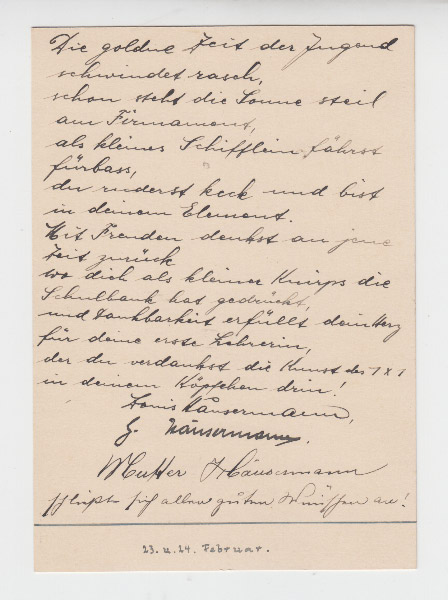 Die goldne Zeit der Jugend
schwindet rasch,
schon steht die Sonne steil
am Firmament,
als kleines Schifflein fährst
fürbass,
du ruderst keck und bist
in deinem Element.
Mit Freuden denkst an jene
Zeit zurück
wo dich als kleiner Knirps die
Schulbank hat gedrückt,
und Dankbarkeit erfüllt dein Herz
für deine erste Lehrerin,
der du verdankst die Kunst des 1 x 1
in deinem Köpfchen drin!
Häusermann,
G. Häusermann,
Mutter Häusermann
schliesst sich allen guten Wünschen an!
23. u. 24. Februar.